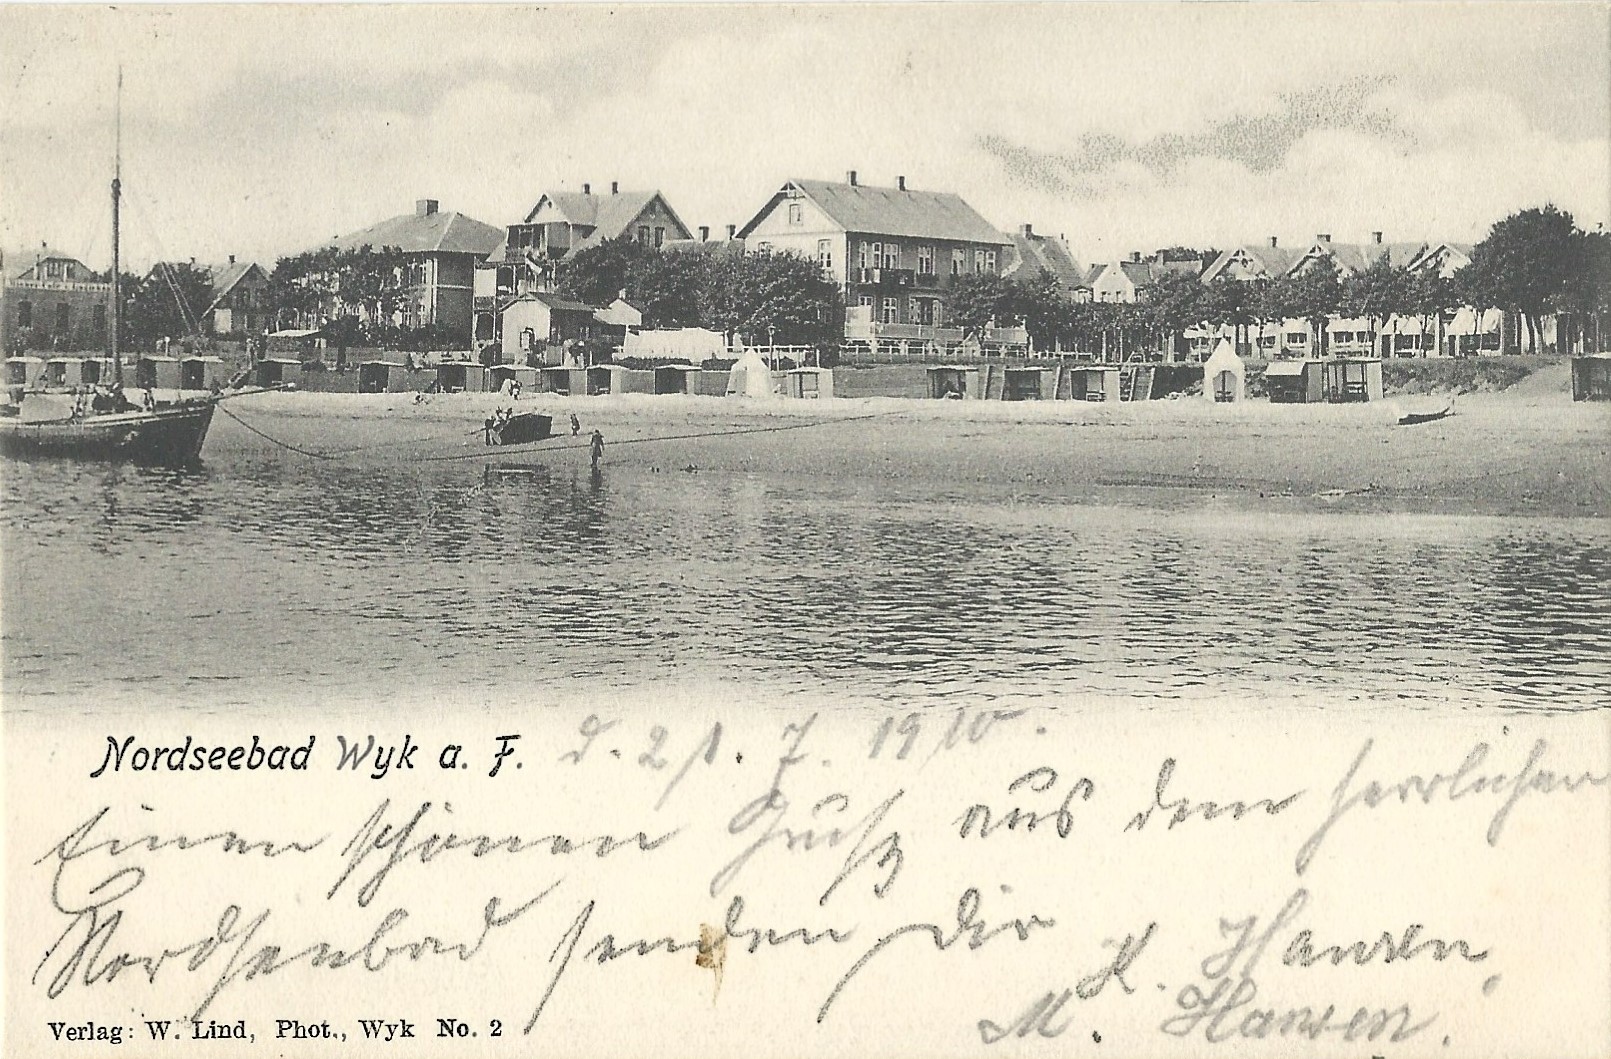 Nordseebad Wyk a. F. d. 21. 7. 1910.
Einen schönen Gruß aus dem herrlichen
Nordseebad senden Dir
K. Hansen,
M. Hansen.
Verlag: W. Lind, Phot., Wyk No. 2